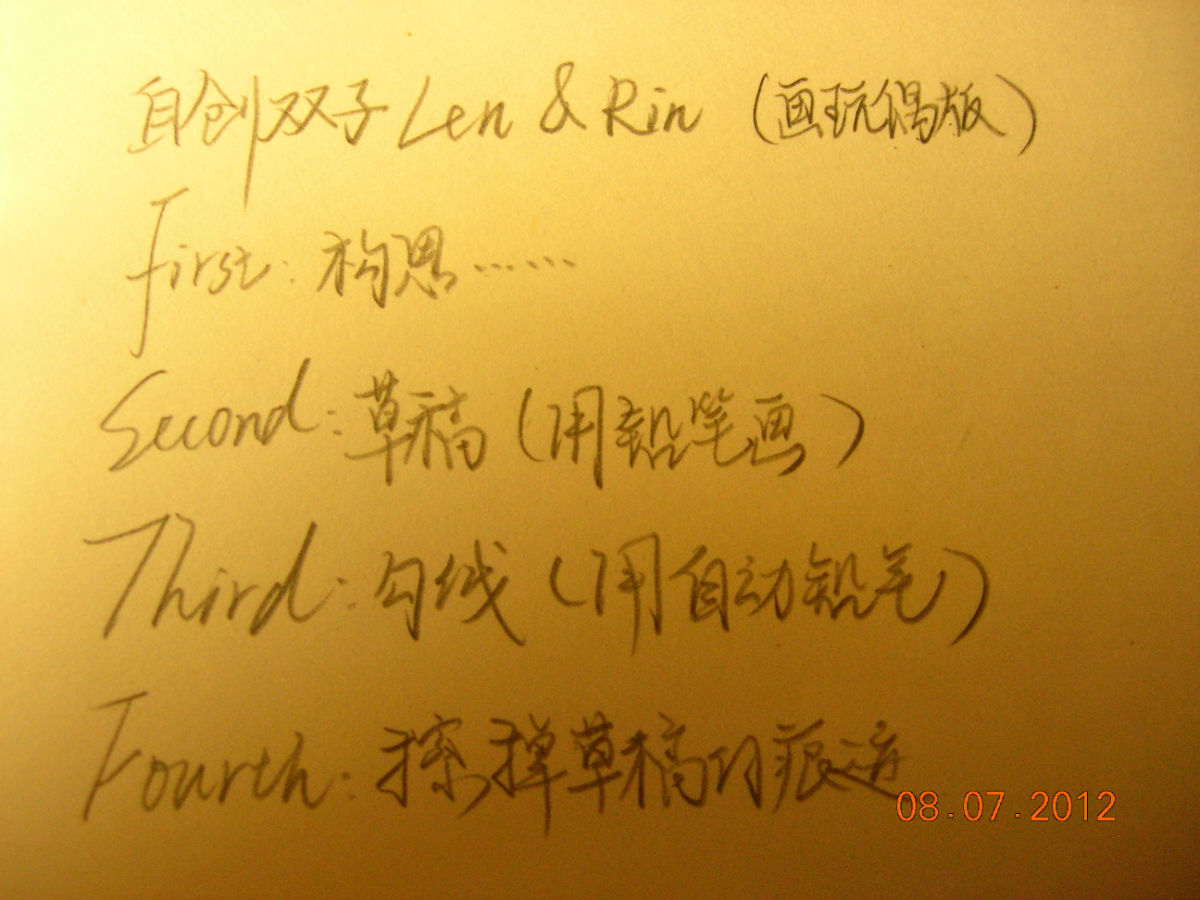 自创双子 Len & Rin (画玩偶版)
First: 构思……
Second: 草稿 (用铅笔画)
Third: 勾线 (用自动铅笔)
Fourth: 擦掉草稿的痕迹
08.07.2012